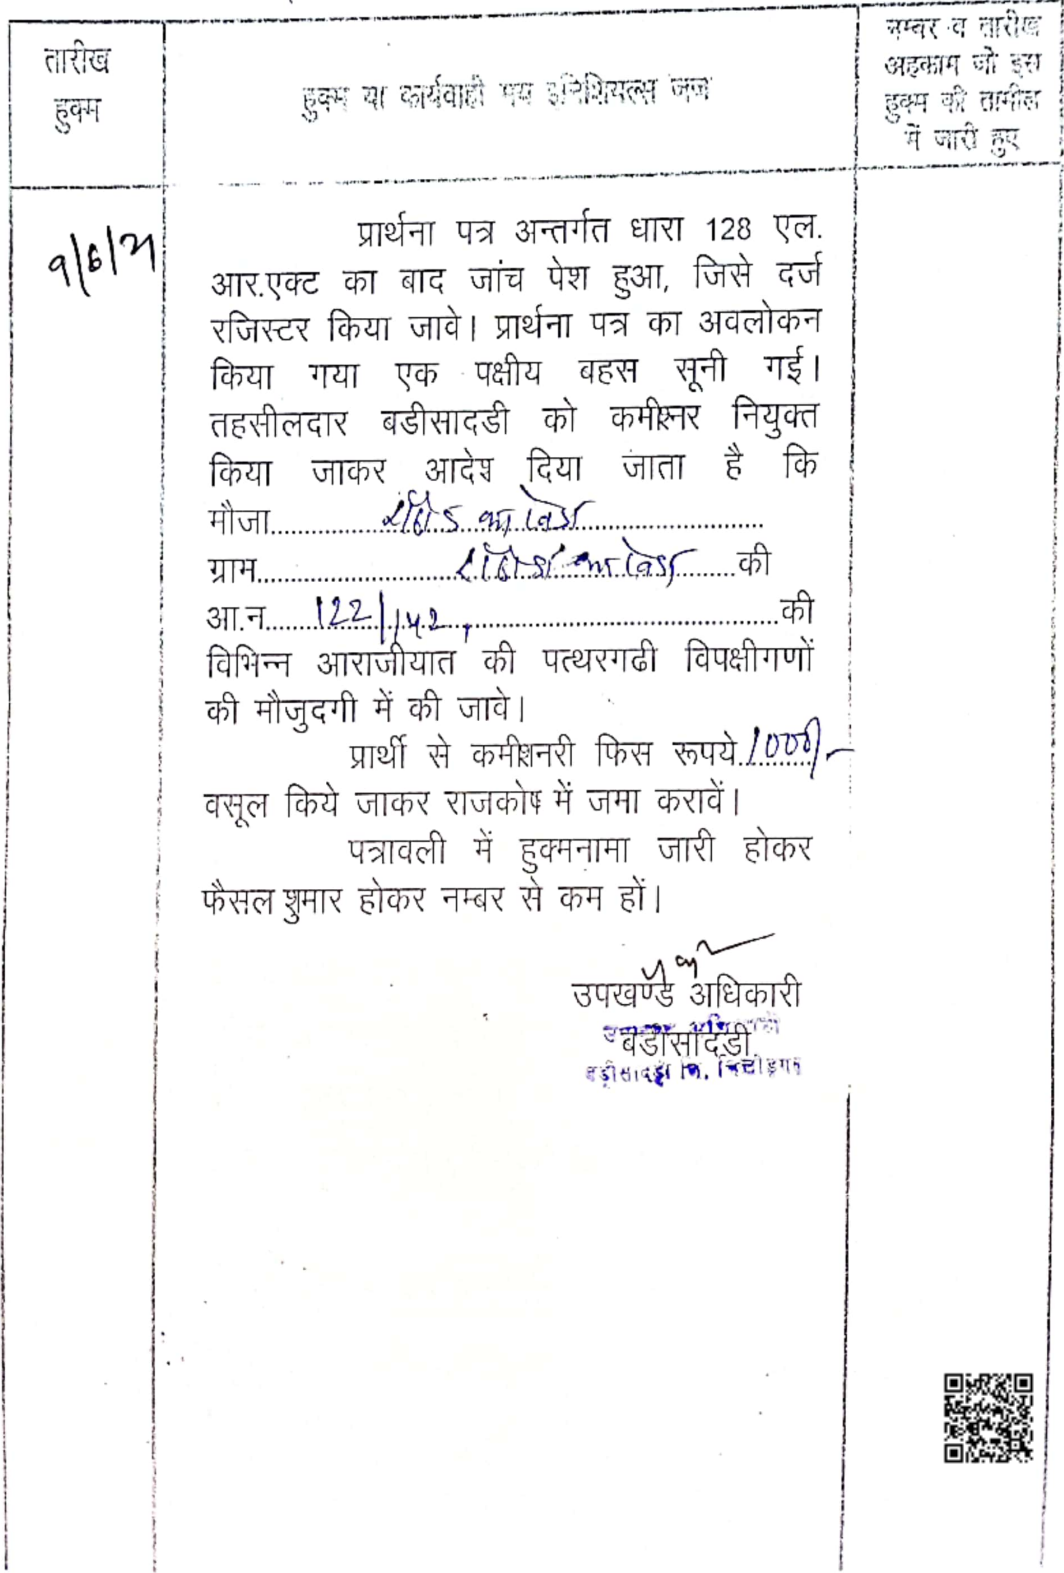 तारीख
हुक्म
हुक्म या कार्यवाही मय इनिशियल्स जज
नम्बर व तारीख
अहकाम जो इस
हुक्म की तामील
में जारी हुए
9/6/21
प्रार्थना पत्र अन्तर्गत धारा 128 एल.
आर.एक्ट का बाद जांच पेश हुआ, जिसे दर्ज
रजिस्टर किया जावे। प्रार्थना पत्र का अवलोकन
किया गया एक पक्षीय बहस सूनी गई।
तहसीलदार बडीसादडी को कमीश्नर नियुक्त
किया जाकर आदेश दिया जाता है कि
मौजा.......... का खेडा..........
ग्राम.......... का खेडा..........की
आ.न.....122/142,..........की
विभिन्न आराजीयात की पत्थरगढी विपक्षीगणों
की मौजुदगी में की जावे।
प्रार्थी से कमीशनरी फिस रूपये.1000/-
वसूल किये जाकर राजकोष में जमा करावें।
पत्रावली में हुक्मनामा जारी होकर
फैसल शुमार होकर नम्बर से कम हों।
उपखण्ड अधिकारी
बडीसादडी